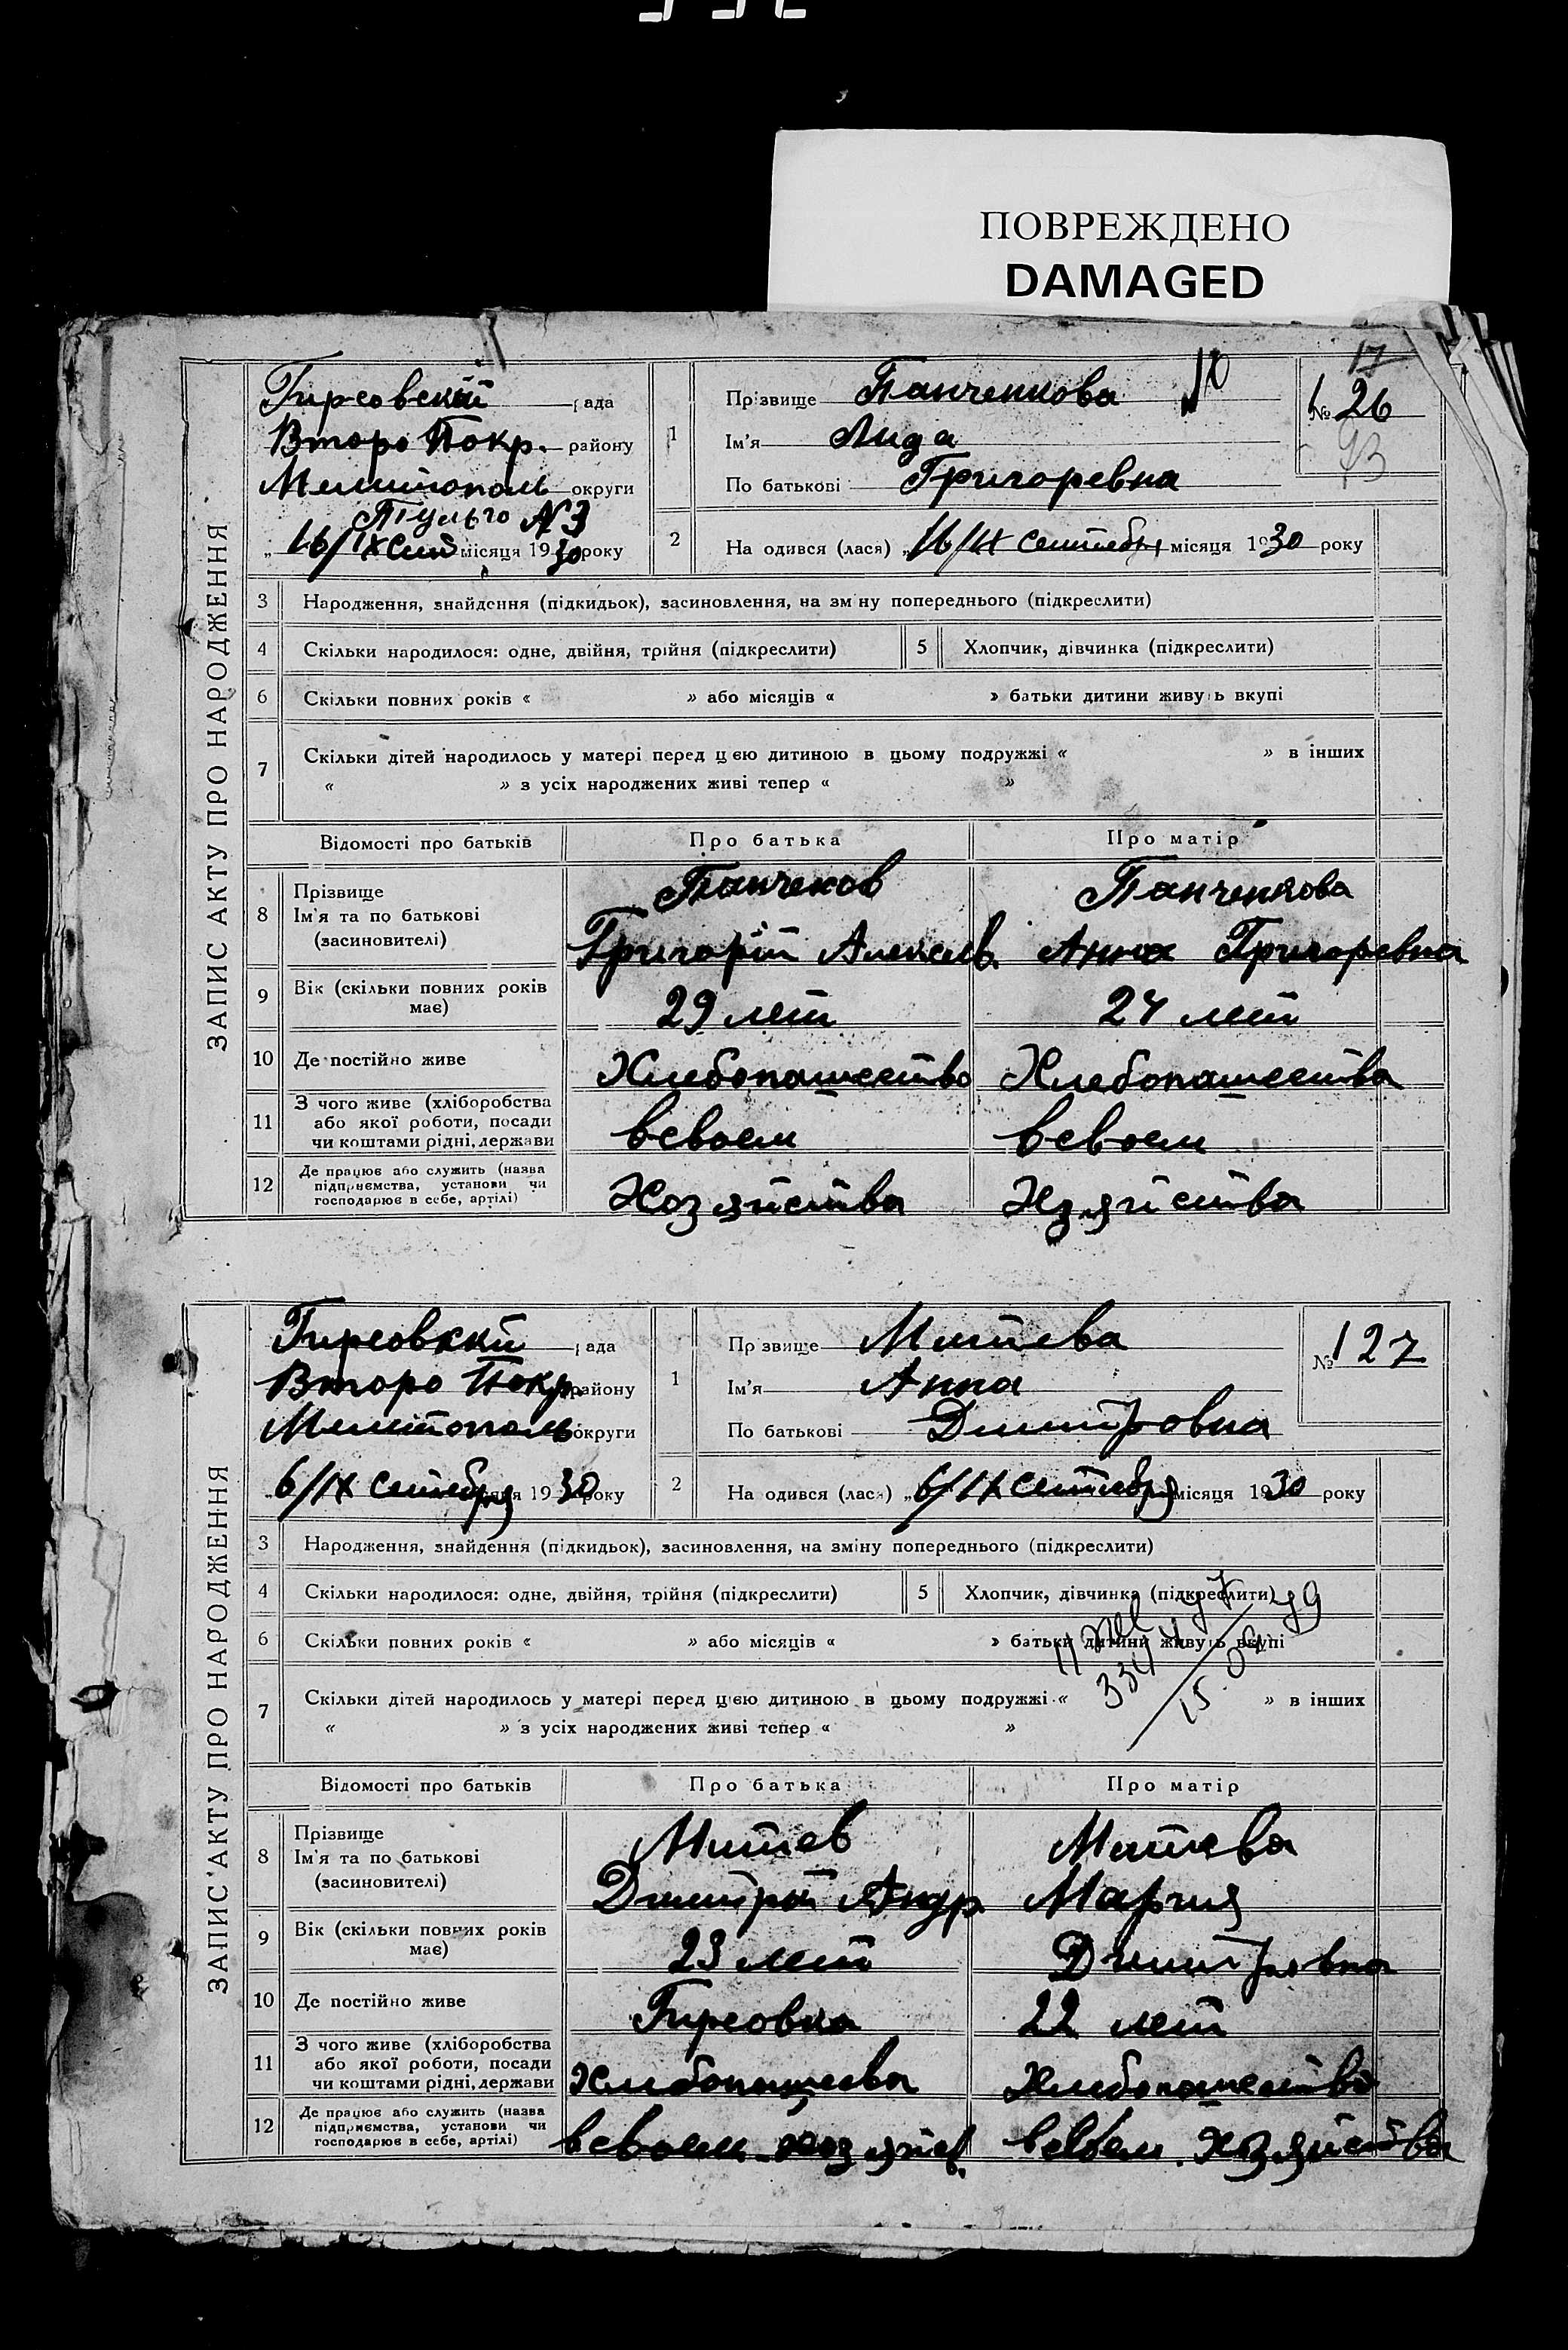 ПОВРЕЖДЕНО
DAMAGED
17
ЗАПИС АКТУ ПРО НАРОДЖЕННЯ
Гирсовский рада
Второ Покр. району
Мелитополь округи
16/IX сент місяця 1930 року
1
Прізвище Панченкова
Ім'я Лида
По батькові Григоревна
№ 126
93
2 На одився (лася) „16/IX сентебря місяця 1930 року
3 Народження, знайдення (підкидьок), засиновлення, на зміну попереднього (підкреслити)
4 Скільки народилося: одне, двійня, трійня (підкреслити) 5 Хлопчик, дівчинка (підкреслити)
6 Скільки повних років « » або місяців « » батьки дитини живуть вкупі
7 Скільки дітей народилось у матері перед цією дитиною в цьому подружжі « » в інших
« » з усіх народжених живі тепер « »
Відомості про батьків Про батька Про матір
8 Прізвище
Ім'я та по батькові
(засиновителі)
Панченков
Григорій Алексеев.
Панченкова
Анна Григоревна
9 Вік (скільки повних років має) 29 лет 24 лет
10 Де постійно живе Хлебопашество Хлебопашества
11 З чого живе (хліборобства
або якої роботи, посади
чи коштами рідні, держави
всвоем всвоем
12 Де працює або служить (назва
підприємства, установи чи
господарює в себе, артілі)
Хозяйства Хзяйства
ЗАПИС АКТУ ПРО НАРОДЖЕННЯ
Гирсовкий рада
Второ Покр. району
Мелитополь округи
6/IX сентебря місяця 1930 року
1
Прізвище Митева
Ім'я Анна
По батькові Дмитровна
№ 127
2 На одився (лася) „6/IX сентебря місяця 1930 року
3 Народження, знайдення (підкидьок), засиновлення, на зміну попереднього (підкреслити)
4 Скільки народилося: одне, двійня, трійня (підкреслити) 5 Хлопчик, дівчинка (підкреслити)
6 Скільки повних років « » або місяців « » батьки дитини живуть вкупі
7 Скільки дітей народилось у матері перед цією дитиною в цьому подружжі « » в інших
« » з усіх народжених живі тепер « »
Відомості про батьків Про батька Про матір
8 Прізвище
Ім'я та по батькові
(засиновителі)
Митев
Дмитрй Андр.
Митева
Мария
9 Вік (скільки повних років має) 23 лет Дмитровна
10 Де постійно живе Гирсовка 22 лет
11 З чого живе (хліборобства
або якої роботи, посади
чи коштами рідні, держави
Хлебопашева Хлебопашество
12 Де працює або служить (назва
підприємства, установи чи
господарює в себе, артілі)
всвоем хозяйсв. всвоем. хозяйства